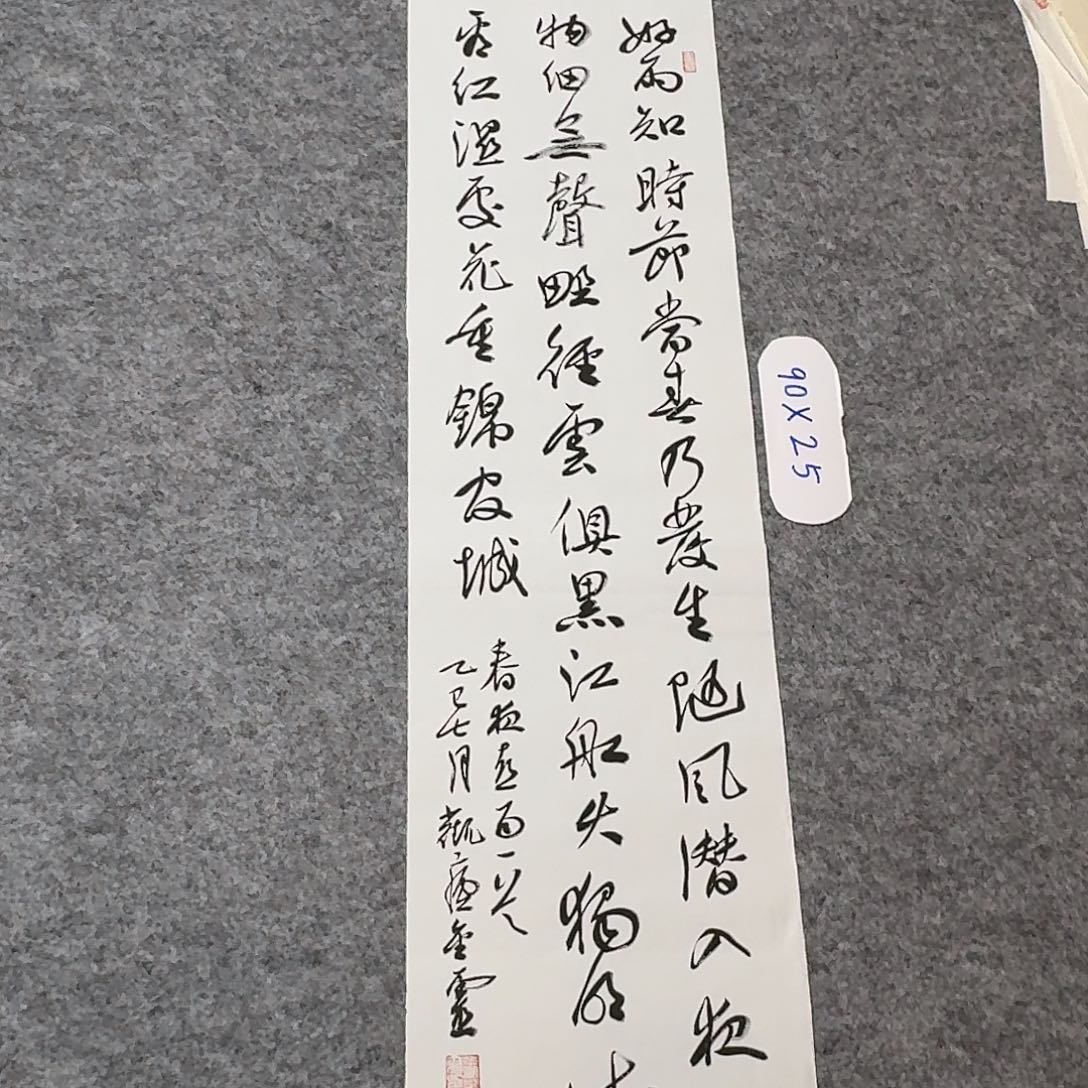 好雨知時節當春乃發生随风潜入夜
物细無聲野徑雲俱黑江船火獨明
看红濕處花重錦官城
春夜喜雨一首
乙巳七月觀金靈
90X25